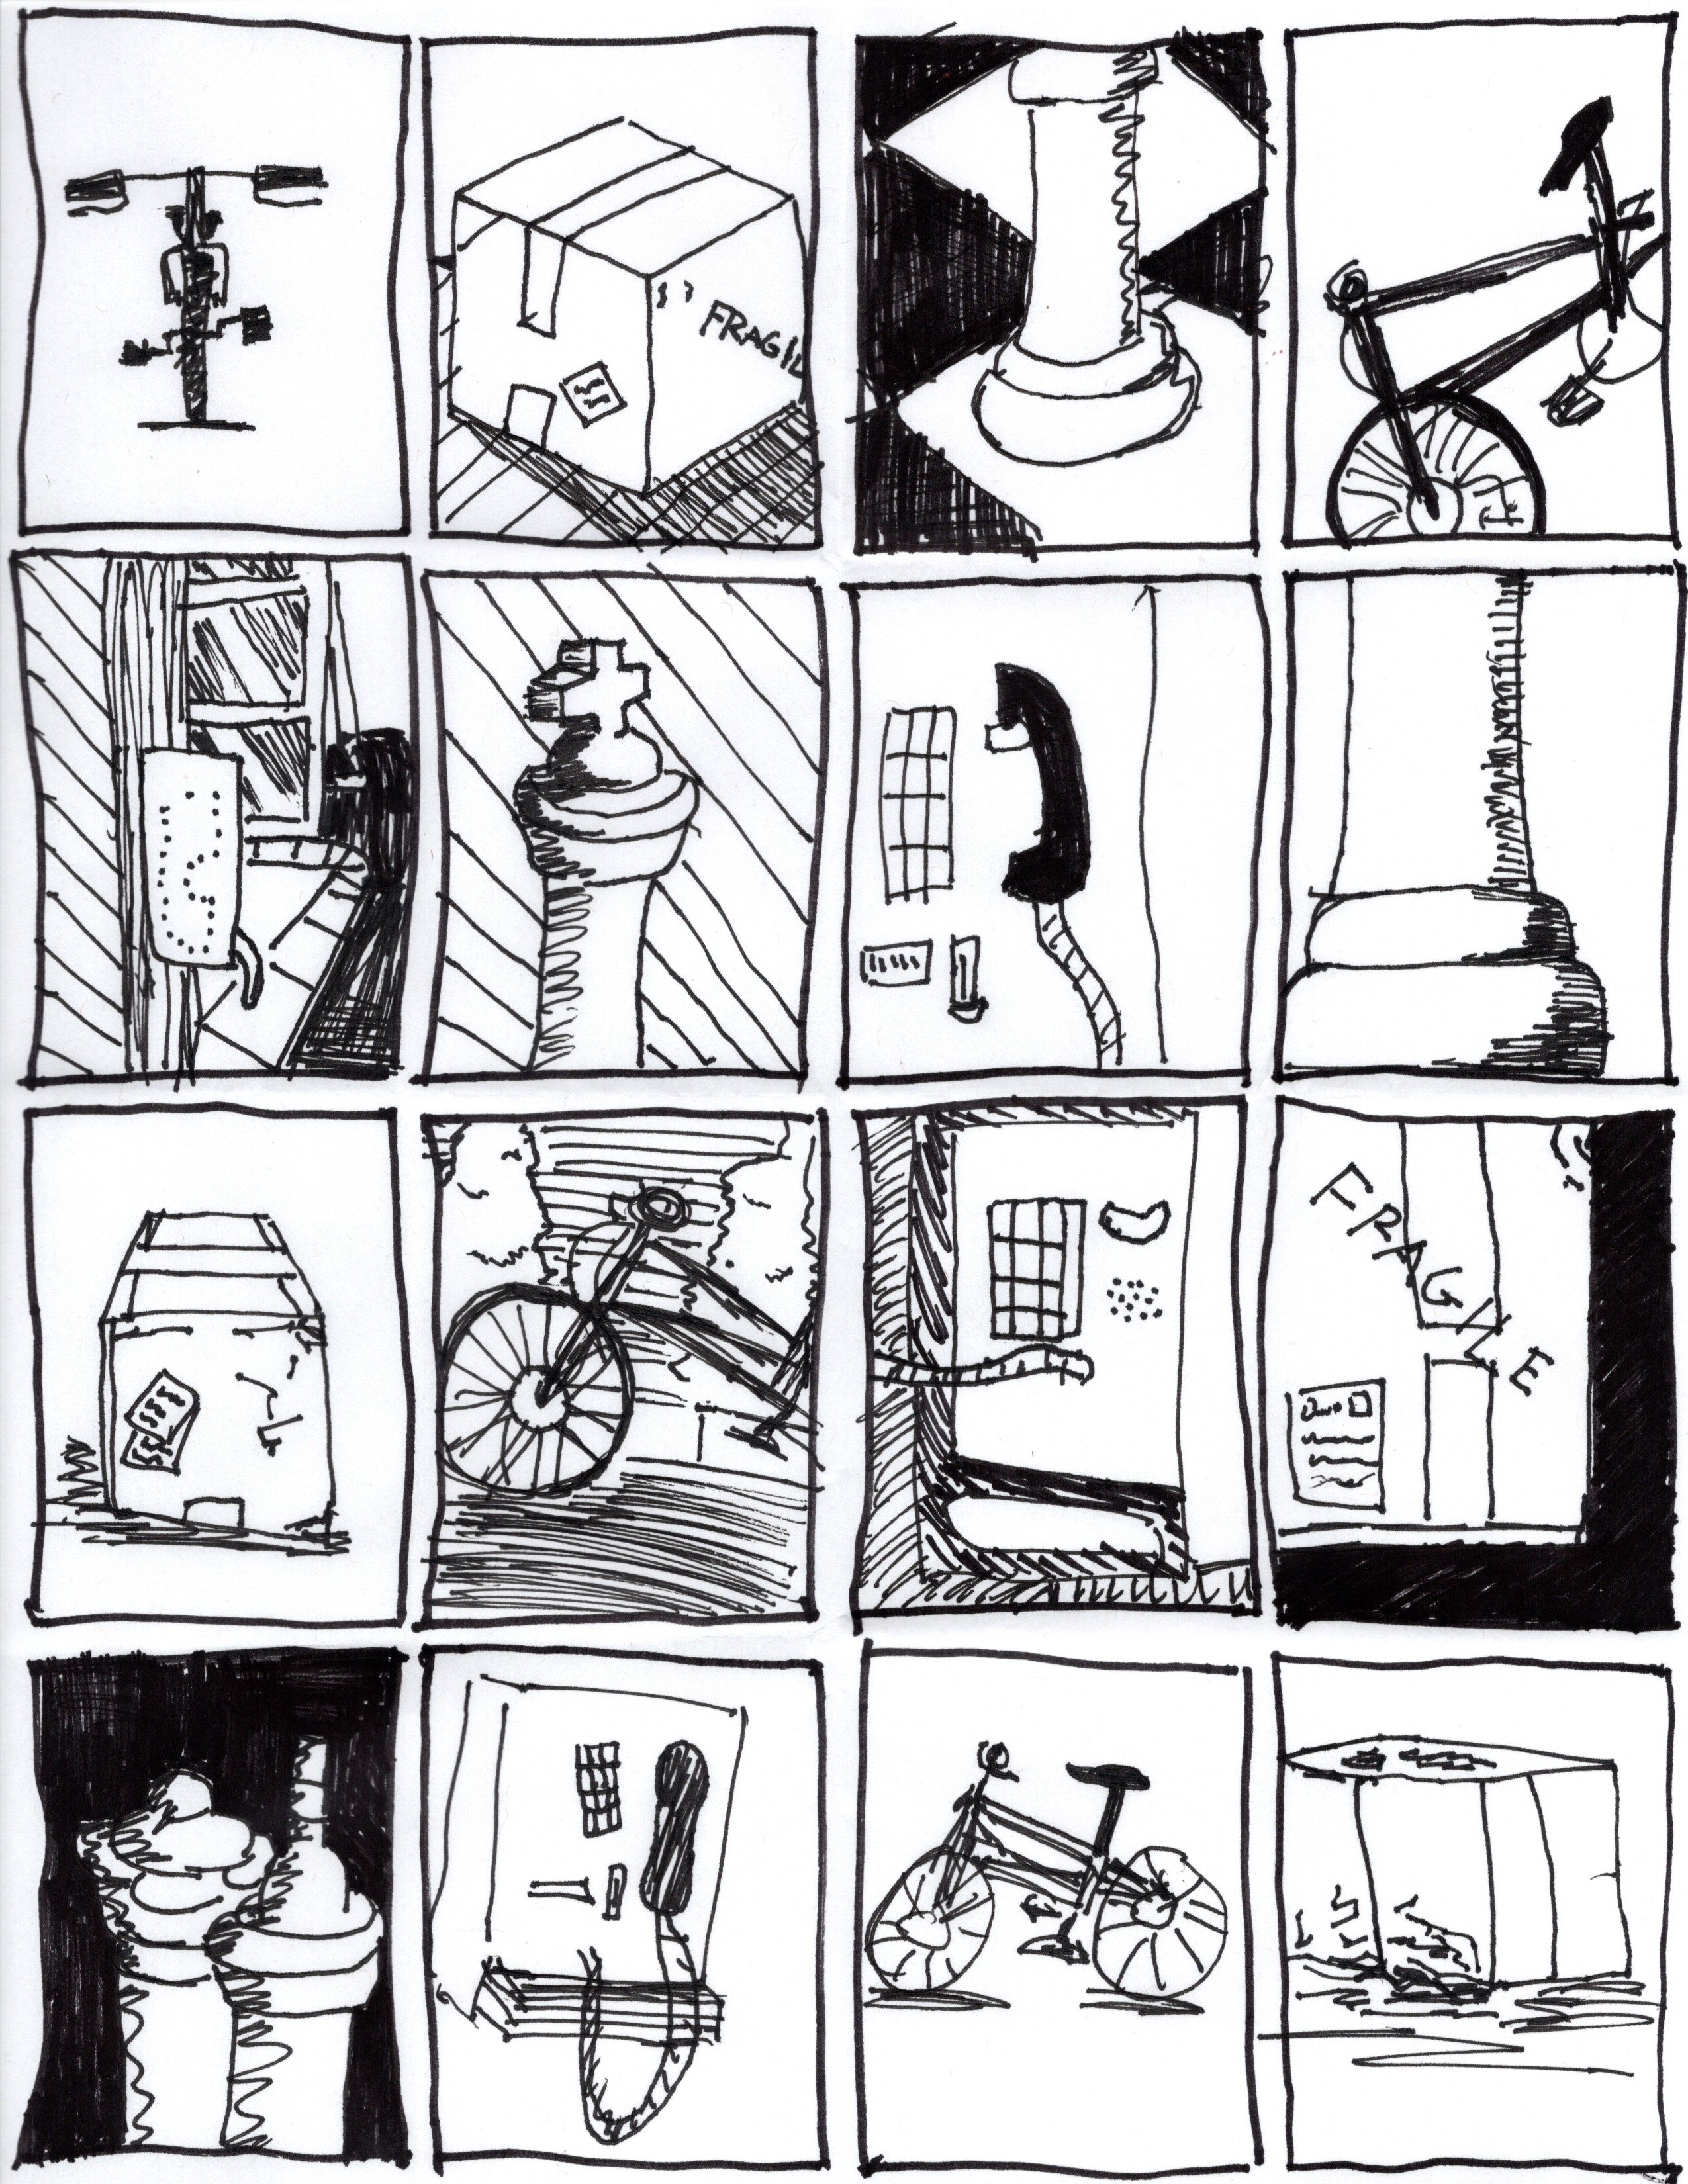 FRAGIL
FRAGILE